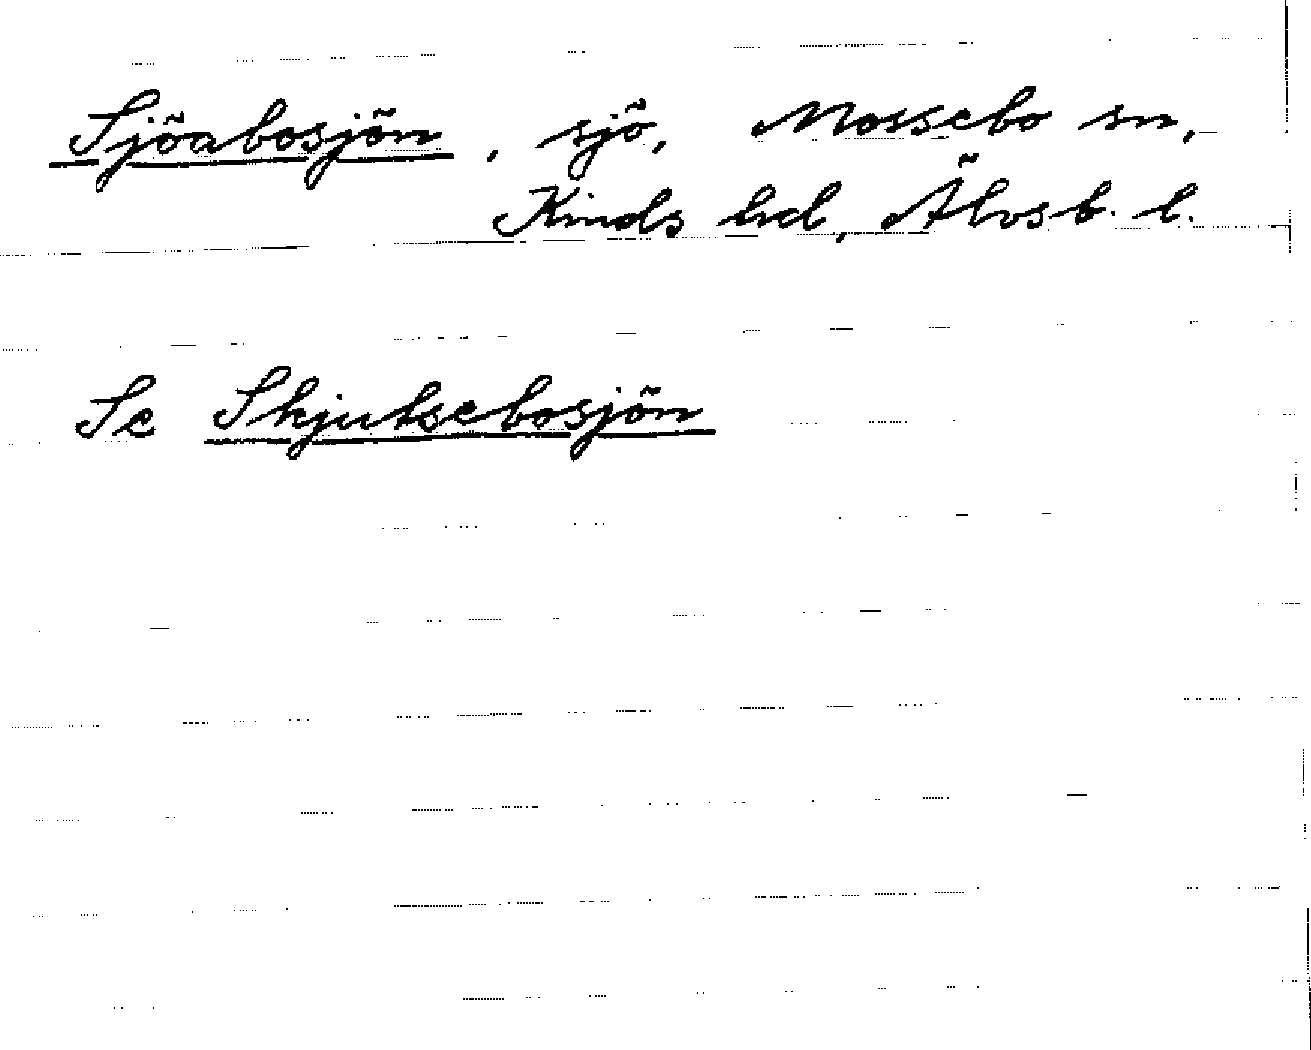 Sjöabosjön, sjö, Mossebo sn,
Kinds hd, Älvsb. l.
Se Skjutsebosjön